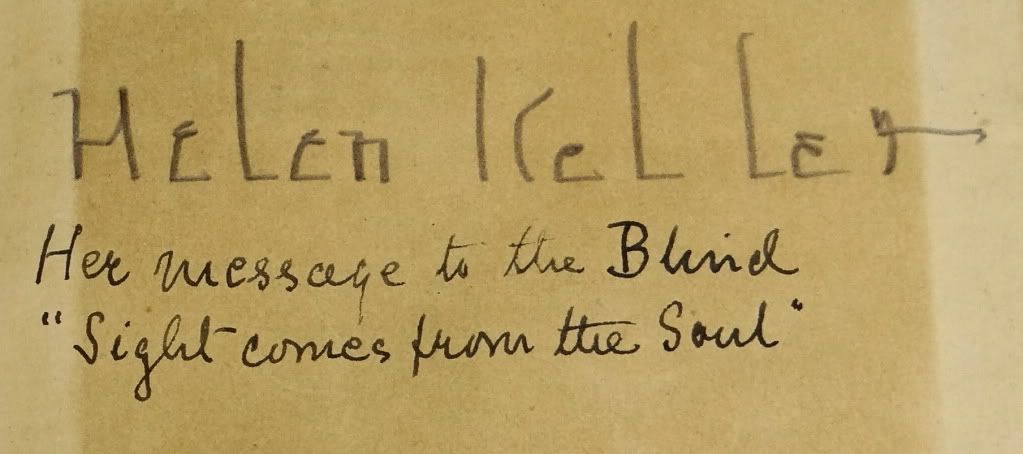 Helen Keller
Her message to the Blind
"Sight comes from the Soul"